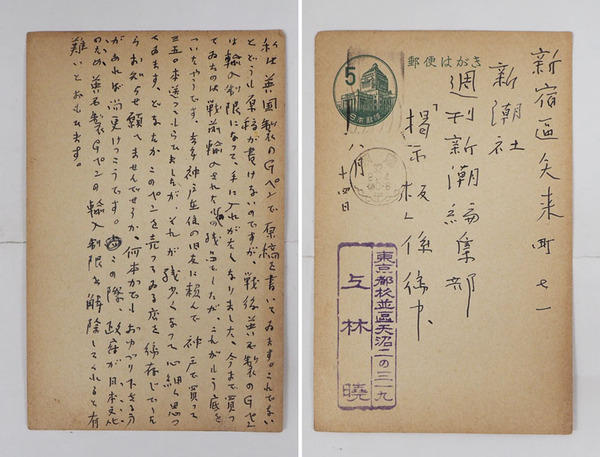 私は英国製のGペンで原稿を書いてゐます。これでない
とどうも原稿が書けないのですが、戦後英国製のGペン
は輸入制限になつて、手に入れがたくなりました。今まで買つ
てゐたのは戦前輸入されたの残品でしたが、これがもう底を
ついたやうです。去年神戸在住の旧友に頼んで、神戸で買つて
三五〇本送つてもらひましたが、それが残少くなつて心細く思つ
てゐます。どなたかこのペンを売つてゐる店を御存じでした
らお知らせ願へませんでせうか。何本かでもおゆづり下さる方
があれば尚更けつこうです。この際、政府が日本文化
のため英国製Gペンの輸入制限を解除してくれると有
難いとおもひます。
郵便はがき
5
日本郵便
新宿區矢来町七一
新潮社
週刊新潮編集部
「掲示板」係御中
八月十四日
東京都杉並區天沼二の三一九
上林暁